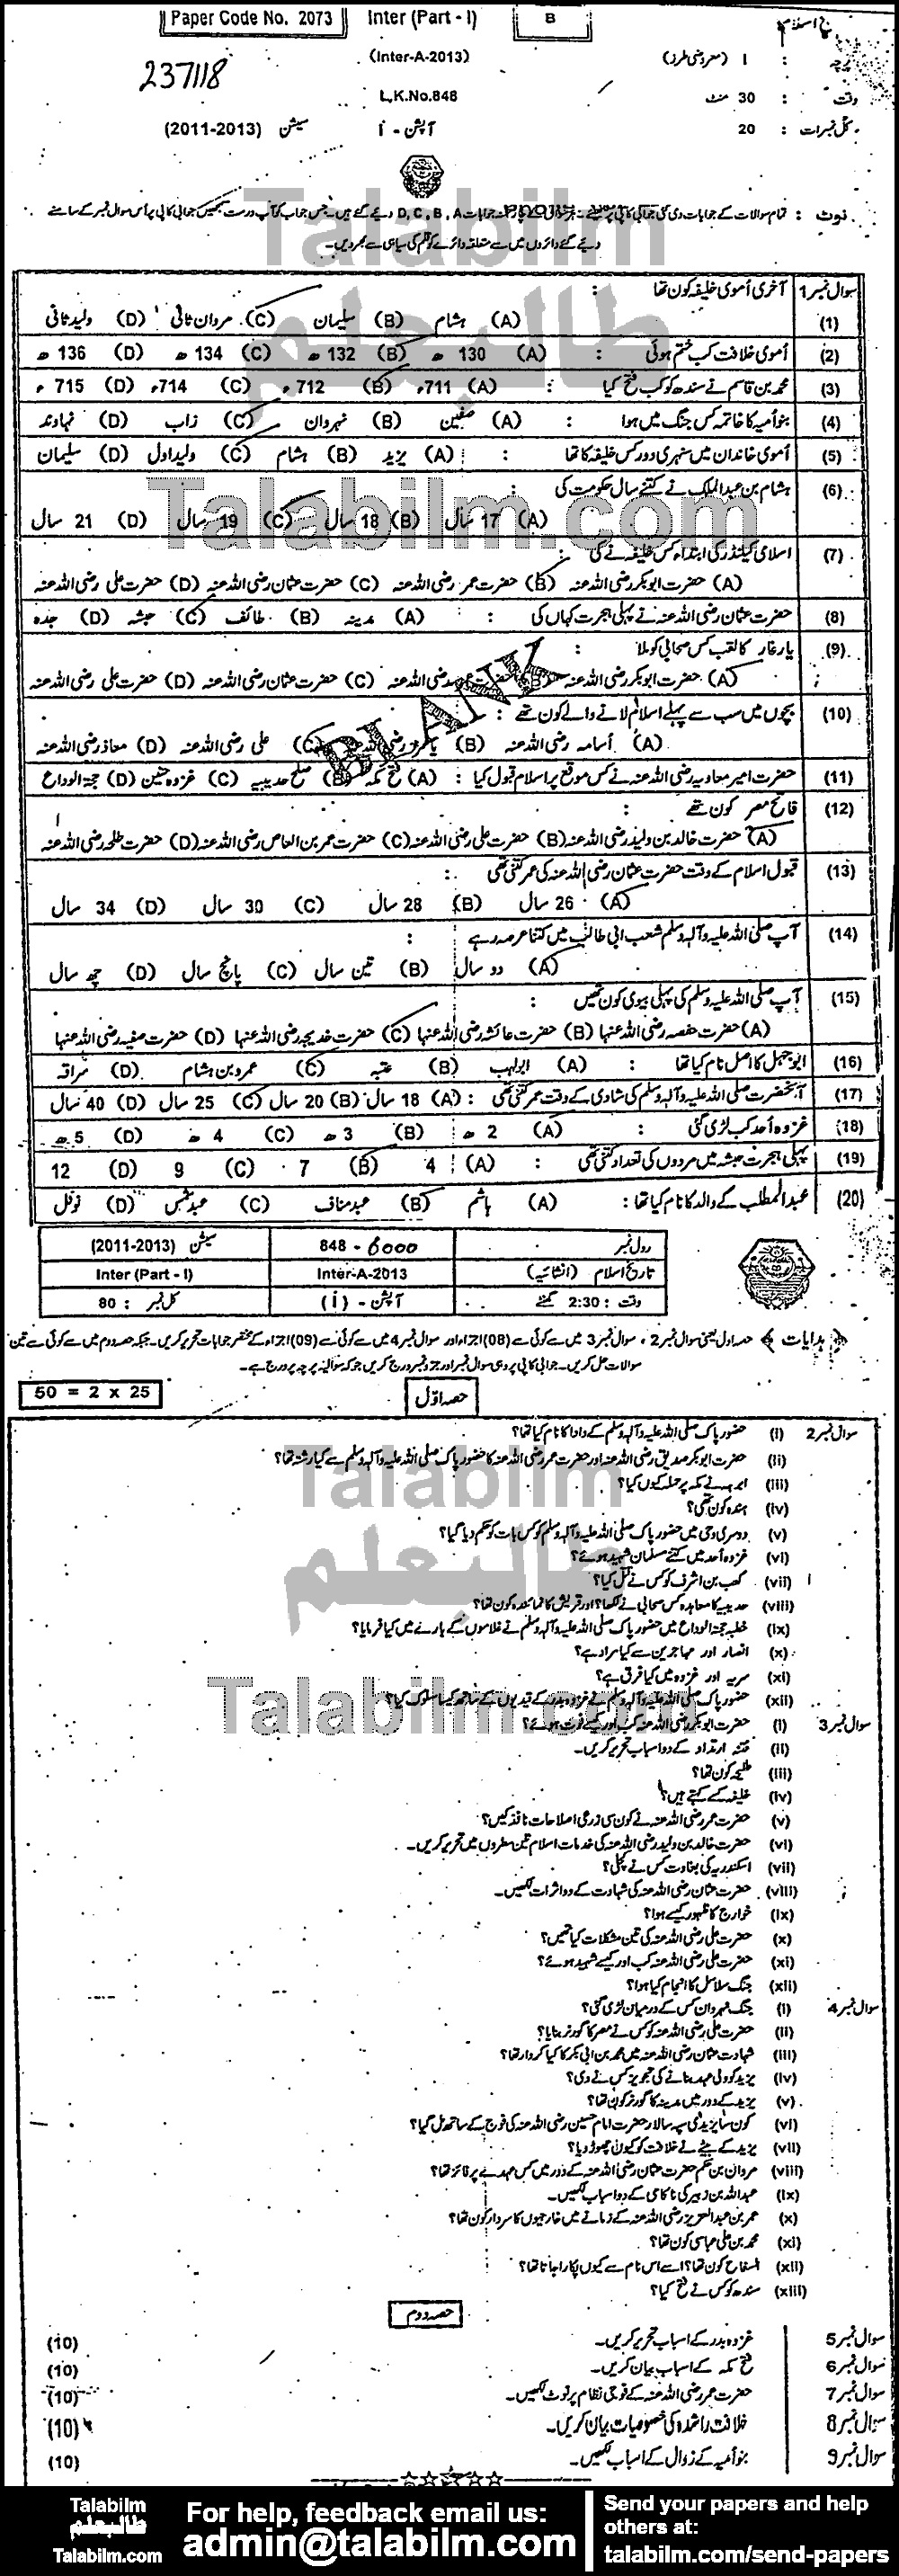 Paper Code No. 2073 Inter (Part - I) B
تاریخ اسلام
237118 (Inter-A-2013) پرچہ : I (معروضی طرز)
L.K.No.848 وقت : 30 منٹ
سیشن (2011-2013) آپشن - i کل نمبرات : 20
نوٹ : تمام سوالات کے جوابات دی گئی جوابی کاپی پر لکھئے۔ ہر سوال کے چار ممکنہ جوابات D, C, B, A دیئے گئے ہیں۔ جس جواب کو آپ درست سمجھیں جوابی کاپی پر اُس سوال نمبر کے سامنے
دیئے گئے دائروں میں سے متعلقہ دائرے کو قلم کی سیاہی سے بھر دیں۔
Talabilm
طالبعلم
سوال نمبر 1 آخری اُموی خلیفہ کون تھا :
(1) (A) ہشام (B) سلیمان (C) مروان ثانی (D) ولید ثانی
(2) اُموی خلافت کب ختم ہوئی : (A) 130 ھ (B) 132 ھ (C) 134 ھ (D) 136 ھ
(3) محمد بن قاسم نے سندھ کو کب فتح کیا : (A) 711ء (B) 712ء (C) 714ء (D) 715ء
(4) بنو اُمیہ کا خاتمہ کس جنگ میں ہوا : (A) صفین (B) نہروان (C) زاب (D) نہاوند
(5) اُموی خاندان میں سنہری دور کس خلیفہ کا تھا : (A) یزید (B) ہشام (C) ولید اول (D) سلیمان
Talabilm.com
(6) ہشام بن عبدالملک نے کتنے سال حکومت کی :
(A) 17 سال (B) 18 سال (C) 19 سال (D) 21 سال
(7) اسلامی کیلنڈر کی ابتداء کس خلیفہ نے کی
(A) حضرت ابوبکر رضی اللہ عنہ (B) حضرت عمر رضی اللہ عنہ (C) حضرت عثمان رضی اللہ عنہ (D) حضرت علی رضی اللہ عنہ
(8) حضرت عثمان رضی اللہ عنہ نے پہلی ہجرت کہاں کی : (A) مدینہ (B) طائف (C) حبشہ (D) جدہ
(9) یارِ غار کا لقب کس صحابی کو ملا :
(A) حضرت ابوبکر رضی اللہ عنہ (B) حضرت عمر رضی اللہ عنہ (C) حضرت عثمان رضی اللہ عنہ (D) حضرت علی رضی اللہ عنہ
BLANK
(10) بچوں میں سب سے پہلے اسلام لانے والے کون تھے :
(A) اُسامہ رضی اللہ عنہ (B) رضی اللہ عنہ (C) علی رضی اللہ عنہ (D) معاذ رضی اللہ عنہ
(11) حضرت امیر معاویہ رضی اللہ عنہ نے کس موقع پر اسلام قبول کیا : (A) فتح مکہ (B) صلح حدیبیہ (C) غزوہ حنین (D) حجۃ الوداع
(12) فاتح مصر کون تھے :
(A) حضرت خالد بن ولید رضی اللہ عنہ (B) حضرت علی رضی اللہ عنہ (C) حضرت عمر بن العاص رضی اللہ عنہ (D) حضرت طلحہ رضی اللہ عنہ
(13) قبول اسلام کے وقت حضرت عثمان رضی اللہ عنہ کی عمر کتنی تھی :
(A) 26 سال (B) 28 سال (C) 30 سال (D) 34 سال
(14) آپ صلی اللہ علیہ وآلہ وسلم شعب ابی طالب میں کتنا عرصہ رہے :
(A) دو سال (B) تین سال (C) پانچ سال (D) چھ سال
(15) آپ صلی اللہ علیہ وسلم کی پہلی بیوی کون تھیں :
(A) حضرت حفصہ رضی اللہ عنہا (B) حضرت عائشہ رضی اللہ عنہا (C) حضرت خدیجہ رضی اللہ عنہا (D) حضرت صفیہ رضی اللہ عنہا
(16) ابوجہل کا اصل نام کیا تھا : (A) ابولہب (B) عتبہ (C) عمرو بن ہشام (D) سراقہ
(17) آنحضرت صلی اللہ علیہ وآلہ وسلم کی شادی کے وقت عمر کتنی تھی : (A) 18 سال (B) 20 سال (C) 25 سال (D) 40 سال
(18) غزوہ اُحد کب لڑی گئی : (A) 2 ھ (B) 3 ھ (C) 4 ھ (D) 5 ھ
(19) پہلی ہجرت حبشہ میں مردوں کی تعداد کتنی تھی : (A) 4 (B) 7 (C) 9 (D) 12
(20) عبدالمطلب کے والد کا نام کیا تھا : (A) ہاشم (B) عبد مناف (C) عبد شمس (D) نوفل
رول نمبر 848 - 6000 سیشن (2011-2013)
تاریخ اسلام (انشائیہ) Inter-A-2013 Inter (Part - I)
وقت : 2:30 گھنٹے آپشن - (i) کل نمبر : 80
﴿ہدایات﴾ حصہ اول یعنی سوال نمبر 2، سوال نمبر 3 میں سے کوئی سے (08) اجزاء اور سوال نمبر 4 میں سے کوئی سے (09) اجزاء کے مختصر جوابات تحریر کریں۔ جبکہ حصہ دوم میں سے کوئی سے تین
سوالات حل کریں۔ جوابی کاپی پر وہی سوال نمبر اور جز نمبر درج کریں جو کہ سوالیہ پرچہ پر درج ہے۔
50 = 2 x 25 حصہ اوّل
سوال نمبر 2 (i) حضور پاک صلی اللہ علیہ وآلہ وسلم کے دادا کا نام کیا تھا؟
(ii) حضرت ابوبکر صدیق رضی اللہ عنہ اور حضرت عمر رضی اللہ عنہ کا حضور پاک صلی اللہ علیہ وآلہ وسلم سے کیا رشتہ تھا؟
(iii) ابرہہ نے مکہ پر حملہ کیوں کیا؟
(iv) ہندہ کون تھی؟
(v) دوسری وحی میں حضور پاک صلی اللہ علیہ وآلہ وسلم کو کس بات کو حکم دیا گیا؟
(vi) غزوہ اُحد میں کتنے مسلمان شہید ہوئے؟
(vii) کعب بن اشرف کو کس نے قتل کیا؟
(viii) حدیبیہ کا معاہدہ کس صحابی نے لکھا؟ اور قریش کا نمائندہ کون تھا؟
(ix) خطبہ حجۃ الوداع میں حضور پاک صلی اللہ علیہ وآلہ وسلم نے غلاموں کے بارے میں کیا فرمایا؟
(x) انصار اور مہاجرین سے کیا مراد ہے؟
(xi) سریہ اور غزوہ میں کیا فرق ہے؟
(xii) حضور پاک صلی اللہ علیہ وآلہ وسلم نے غزوہ بدر کے قیدیوں کے ساتھ کیسا سلوک کیا؟
Talabilm
طالبعلم
Talabilm.com
سوال نمبر 3 (i) حضرت ابوبکر رضی اللہ عنہ کب اور کیسے فوت ہوئے؟
(ii) فتنہ ارتداد کے دو اسباب تحریر کریں۔
(iii) طلیحہ کون تھا؟
(iv) خلیفہ کسے کہتے ہیں؟
(v) حضرت عمر رضی اللہ عنہ نے کون سی زرعی اصلاحات نافذ کیں؟
(vi) حضرت خالد بن ولید رضی اللہ عنہ کی خدمات اسلام تین سطروں میں تحریر کریں۔
(vii) اسکندریہ کی بغاوت کس نے کچلی؟
(viii) حضرت عثمان رضی اللہ عنہ کی شہادت کے دو اثرات لکھیں۔
(ix) خوارج کا ظہور کیسے ہوا؟
(x) حضرت علی رضی اللہ عنہ کی تین مشکلات کیا تھیں؟
(xi) حضرت علی رضی اللہ عنہ کب اور کیسے شہید ہوئے؟
(xii) جنگ سلاسل کا انجام کیا ہوا؟
سوال نمبر 4 (i) جنگ نہروان کس کے درمیان لڑی گئی؟
(ii) حضرت علی رضی اللہ عنہ کو کس نے مصر کا گورنر بنایا؟
(iii) شہادت عثمان رضی اللہ عنہ میں محمد بن ابی بکر کا کیا کردار تھا؟
(iv) یزید کو ولی عہد بنانے کی تجویز کس نے دی؟
(v) یزید کے دور میں مدینہ کا گورنر کون تھا؟
(vi) کون سا یزیدی سپہ سالار حضرت امام حسین رضی اللہ عنہ کی فوج کے ساتھ مل گیا؟
(vii) یزید کے بیٹے نے خلافت کو کیوں چھوڑ دیا؟
(viii) مروان بن حکم حضرت عثمان رضی اللہ عنہ کے دور میں کس عہدے پر فائز تھا؟
(ix) عبداللہ بن زبیر کی ناکامی کے دو اسباب لکھیں۔
(x) عمر بن عبدالعزیز رضی اللہ عنہ کے زمانے میں خارجیوں کا سردار کون تھا؟
(xi) محمد بن علی عباسی کون تھا؟
(xii) السفاح کون تھا؟ اسے اس نام سے کیوں پکارا جاتا تھا؟
(xiii) سندھ کو کس نے فتح کیا؟
حصہ دوم
سوال نمبر 5 غزوہ بدر کے اسباب تحریر کریں۔ (10)
سوال نمبر 6 فتح مکہ کے اسباب بیان کریں۔ (10)
سوال نمبر 7 حضرت عمر رضی اللہ عنہ کے فوجی نظام پر نوٹ لکھیں۔ (10)
سوال نمبر 8 خلافت راشدہ کی خصوصیات بیان کریں۔ (10)
سوال نمبر 9 بنو اُمیہ کے زوال کے اسباب لکھیں۔ (10)
Talabilm
طالبعلم
Talabilm.com
For help, feedback email us:
admin@talabilm.com
Send your papers and help
others at:
talabilm.com/send-papers